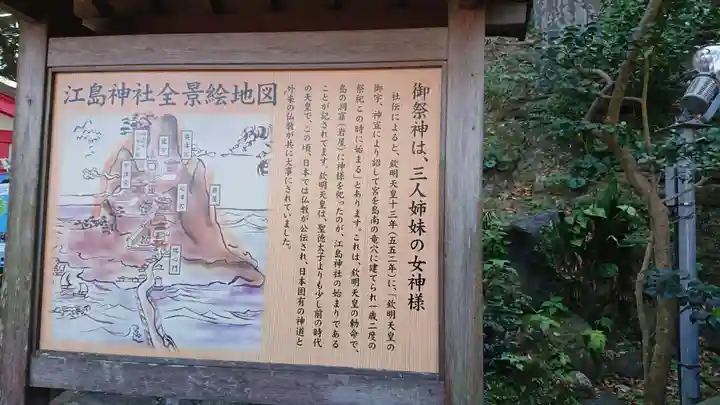 江島神社全景絵地図
御祭神は、三人姉妹の女神様
社伝によると、欽明天皇十三年(五五二年)に、「欽明天皇の
御宇、神宣により詔して宮を島南の竜穴に建てられ一歳二度の
祭祀この時に始まる」とあります。これは、欽明天皇の勅命で、
島の洞窟(岩屋)に神様を祀ったのが、江島神社の始まりである
ことが記されてます。欽明天皇は、聖徳太子よりも少し前の時代
の天皇で、この頃、日本では仏教が公伝され、日本固有の神道と
外来の仏教が共に大事にされていました。